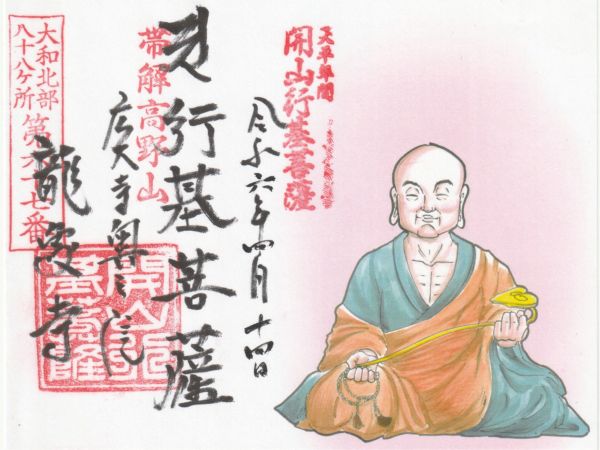 天平年間
開山行基菩薩
令和六年四月十四日
行基菩薩
帯解高野山
広大寺奥之院
龍象寺
大和北部
八十八ヶ所
第六十七番
開山行基菩薩